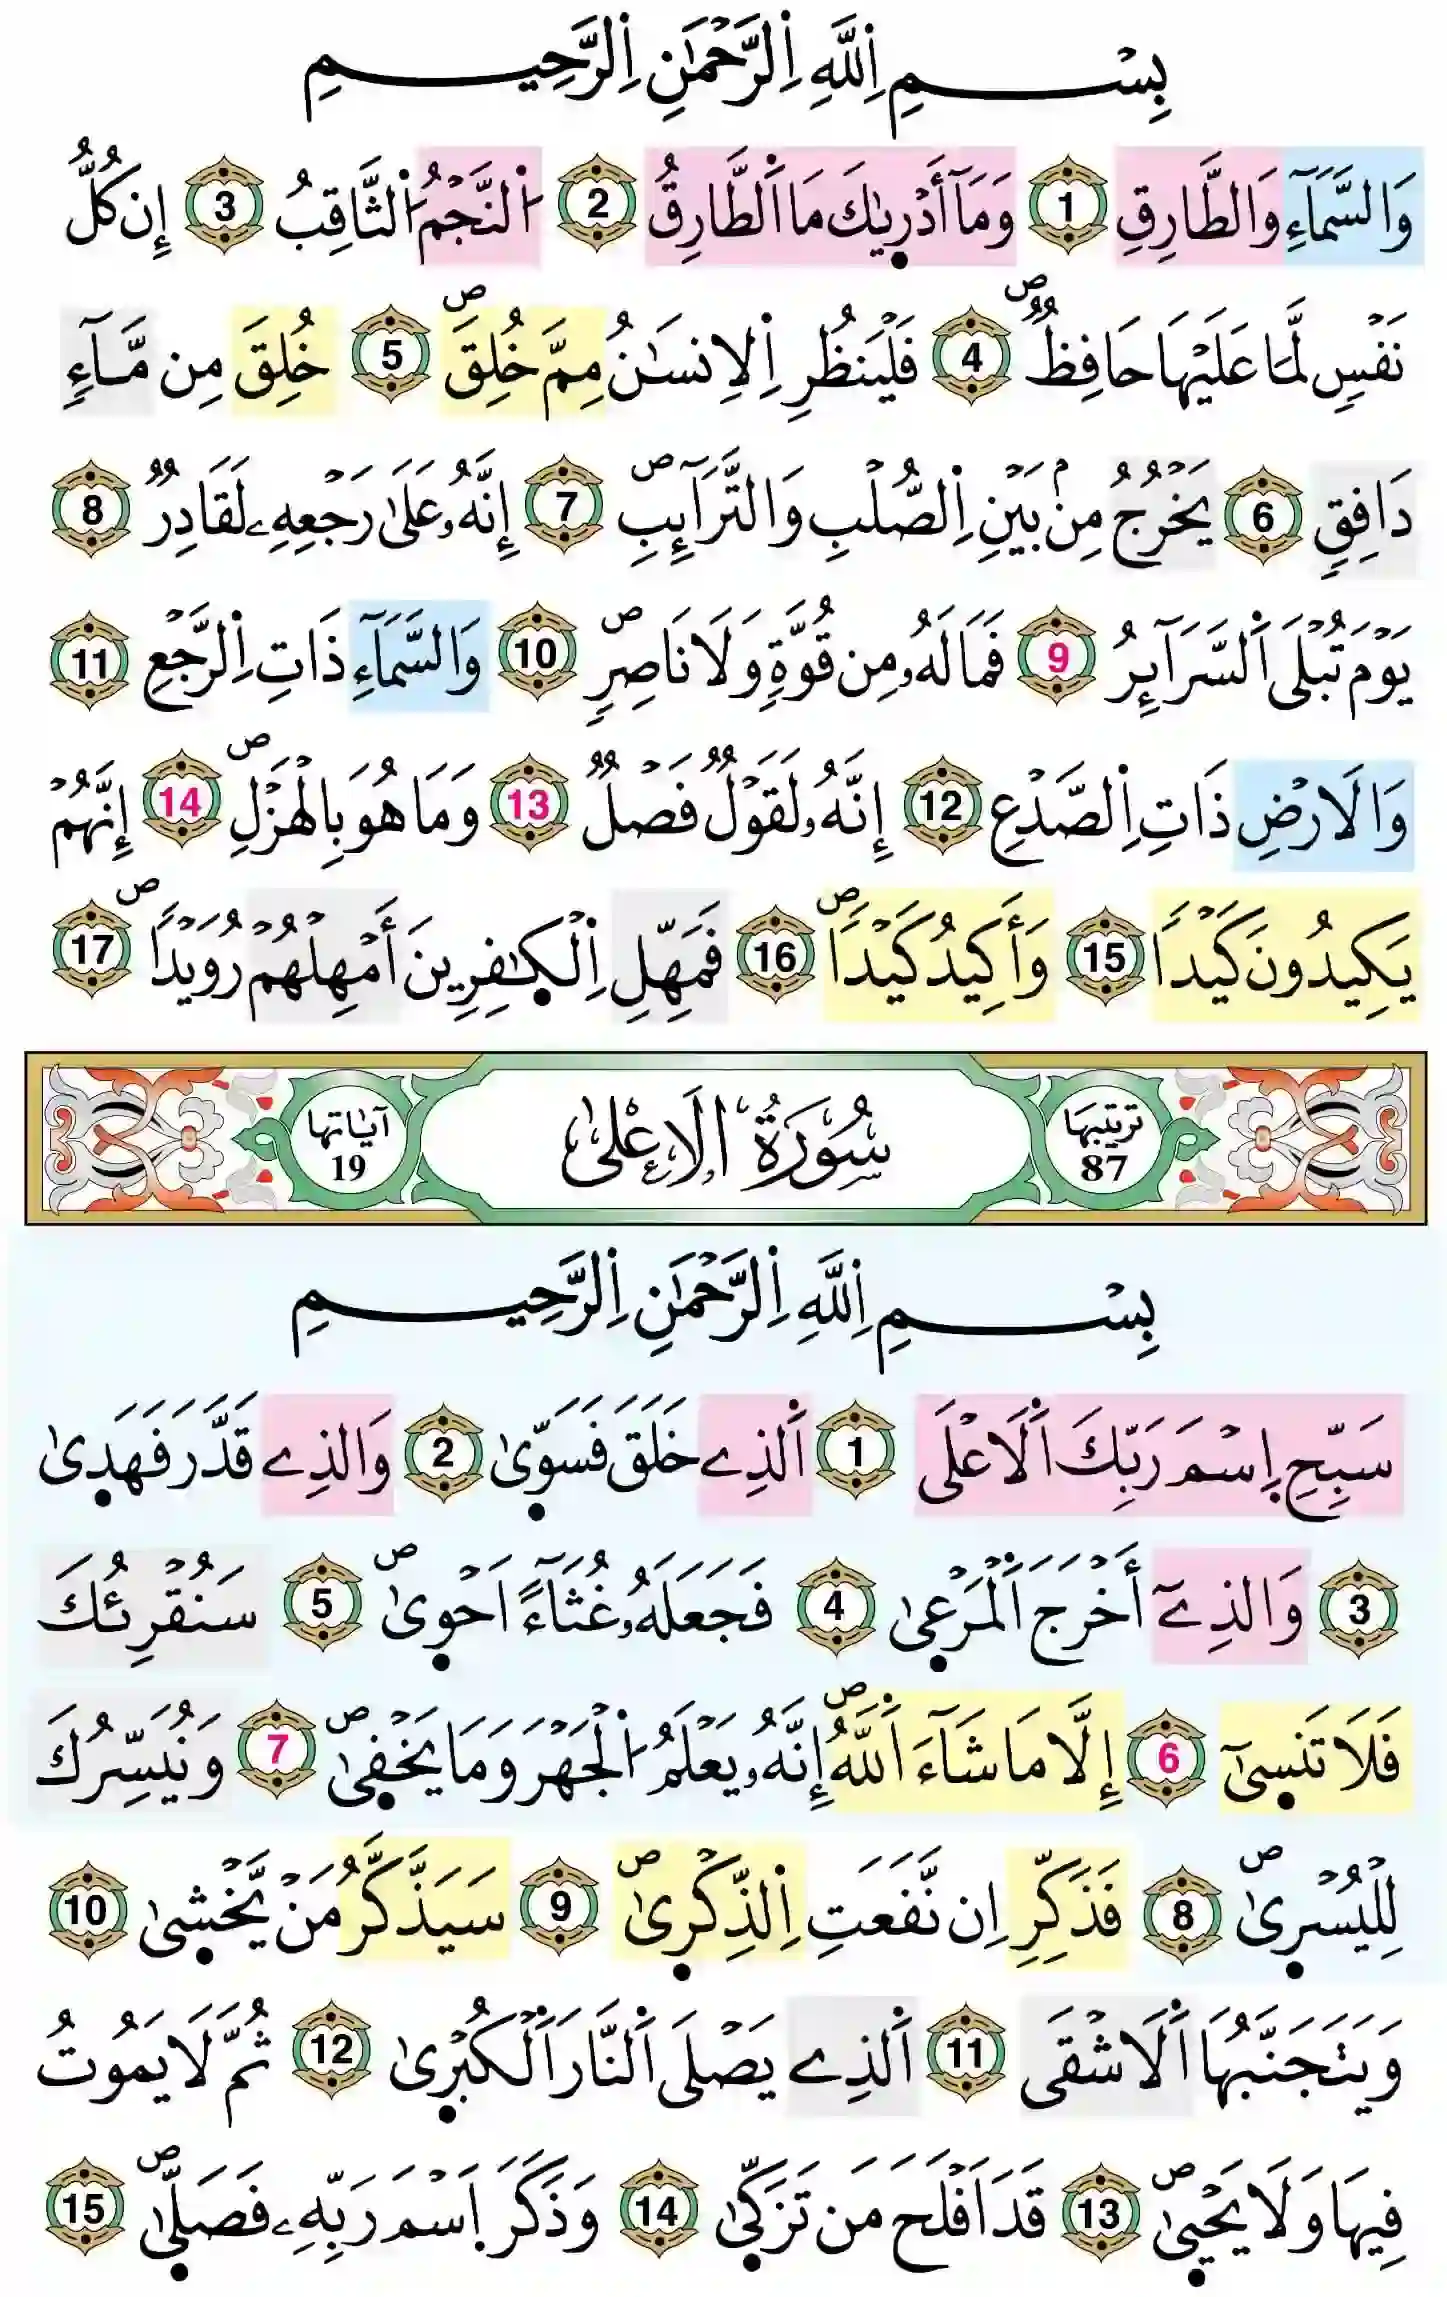 بِسْمِ اِ۬للَّهِ اِ۬لرَّحْمَٰنِ اِ۬لرَّحِيمِ
وَالسَّمَآءِ وَالطَّارِقِ 1 وَمَآ أَدْر۪يٰكَ مَا اَ۬لطَّارِقُ 2 اَ۬لنَّجْمُ اُ۬لثَّاقِبُ 3 إِن كُلُّ
نَفْسٍ لَّمَا عَلَيْهَا حَافِظٌ ص 4 فَلْيَنظُرِ اِ۬لِانسَٰنُ مِمَّ خُلِقَ ص 5 خُلِقَ مِن مَّآءٍ
دَافِقٍ 6 يَخْرُجُ مِنۢ بَيْنِ اِ۬لصُّلْبِ وَالتَّرَآئِبِ ص 7 إِنَّهُۥ عَلَىٰ رَجْعِهِۦ لَقَادِرٌ 8
يَوْمَ تُبْلَى اَ۬لسَّرَآئِرُ 9 فَمَا لَهُۥ مِن قُوَّةٍ وَلَا نَاصِرٍ ص 10 وَالسَّمَآءِ ذَاتِ اِ۬لرَّجْعِ 11
وَالَارْضِ ذَاتِ اِ۬لصَّدْعِ 12 إِنَّهُۥ لَقَوْلٌ فَصْلٌ 13 وَمَا هُوَ بِالْهَزْلِ ص 14 إِنَّهُمْ
يَكِيدُونَ كَيْداً 15 وَأَكِيدُ كَيْداً ص 16 فَمَهِّلِ اِ۬لْكٰ۪فِرِينَ أَمْهِلْهُمْ رُوَيْداً ص 17
ترتيبها 87 سُورَةُ الَاعْلَىٰ آيَاتها 19
بِسْمِ اِ۬للَّهِ اِ۬لرَّحْمَٰنِ اِ۬لرَّحِيمِ
سَبِّحِ اِ۪سْمَ رَبِّكَ اَ۬لَاعْلَى 1 اَ۬لذِے خَلَقَ فَسَوّ۪ىٰ 2 وَالذِے قَدَّرَ فَهَد۪ىٰ
3 وَالذِےٓ أَخْرَجَ اَ۬لْمَرْع۪ىٰ 4 فَجَعَلَهُۥ غُثَآءً اَحْو۪ىٰ ص 5 سَنُقْرِئُكَ
فَلَا تَنس۪ىٰٓ 6 إِلَّا مَا شَآءَ اَ۬للَّهُ ص إِنَّهُۥ يَعْلَمُ اُ۬لْجَهْرَ وَمَا يَخْف۪ىٰ ص 7 وَنُيَسِّرُكَ
لِلْيُسْر۪ىٰ ص 8 فَذَكِّرِ اِن نَّفَعَتِ اِ۬لذِّكْر۪ىٰ ص 9 سَيَذَّكَّرُ مَنْ يَّخْش۪ىٰ 10
وَيَتَجَنَّبُهَا اَ۬لَاشْقَى 11 اَ۬لذِے يَصْلَى اَ۬لنَّارَ اَ۬لْكُبْر۪ىٰ 12 ثُمَّ لَا يَمُوتُ
فِيهَا وَلَا يَحْي۪ىٰ ص 13 قَدَ اَفْلَحَ مَن تَزَكّ۪ىٰ 14 وَذَكَرَ اَ۪سْمَ رَبِّهِۦ فَصَلّ۪ىٰ ص 15